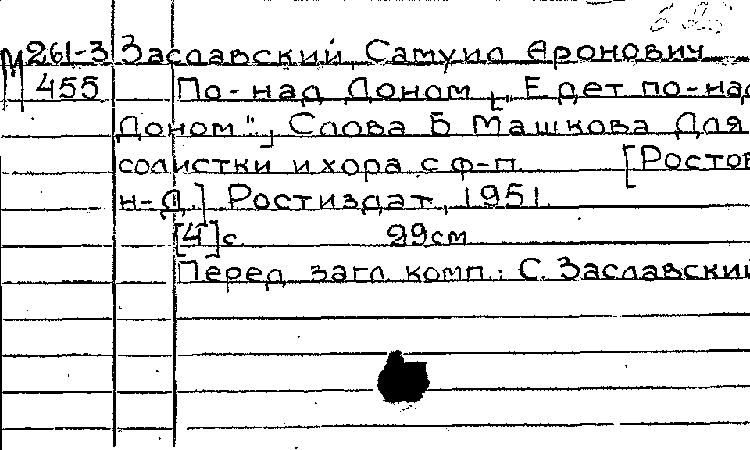 М 261-3 Заславский, Самуил Аронович
455 По-над Доном [„Едет по-над
Доном"], Слова Б Машкова Для
солистки и хора с ф-п. [Ростов
н-Д.] Ростиздат, 1951.
[4] с. 29см.
Перед загл. комп.: С. Заславский